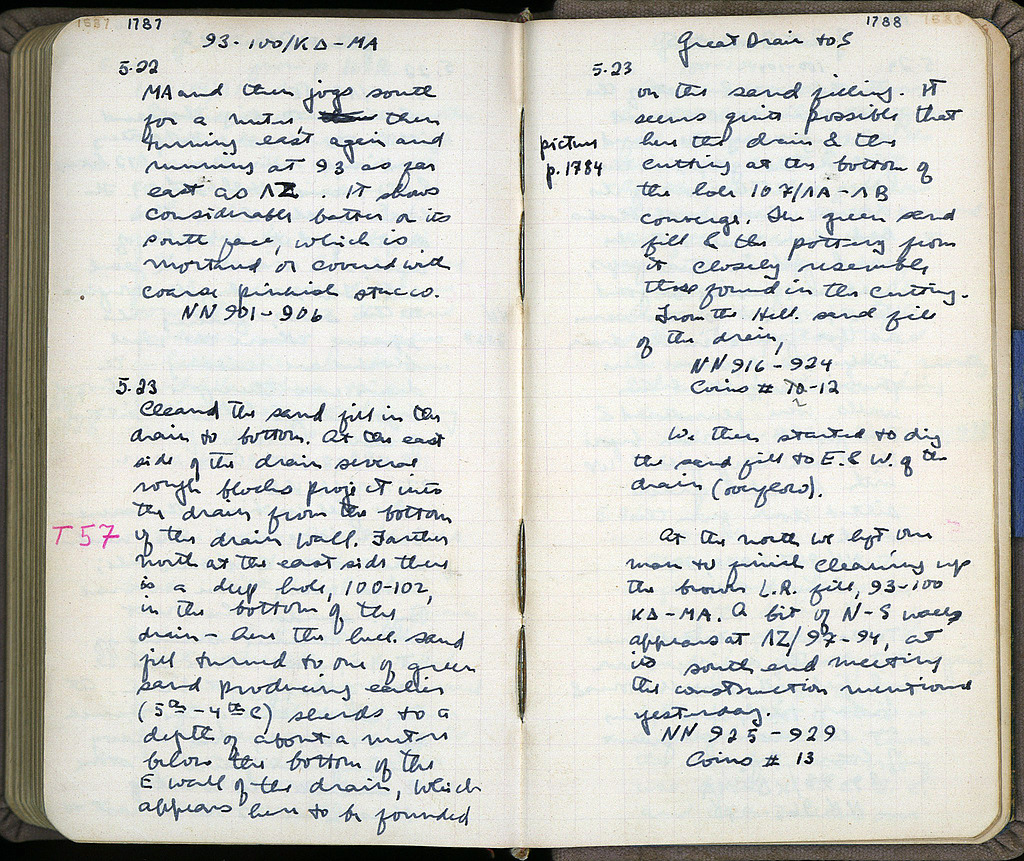 1587 1787
93-100/KΔ-MA
5.22
MA and then jogs south
for a metre then
turning east again and
running at 93 as far
east as ΛΖ. It shows
considerable batter on its
south face, which is
mortared or covered with
coarse pinkish stucco.
NN 901-906
5.23
Cleaned the sand fill in the
drain to bottom. At the east
side of the drain several
rough blocks project into
the drain from the bottom
T 57
of the drain wall. Farther
north at the east side there
is a deep hole, 100-102,
in the bottom of the
drain - here the hell. sand
fill turned to one of green
sand producing earlier
(5th-4th c) sherds to a
depth of about a metre
below the bottom of the
E wall of the drain, which
appears here to be founded
1788 1588
Great Drain to S
5.23
on the sand filling. It
seems quite possible that
picture
p. 1784
here the drain & the
cutting at the bottom of
the hole 107/ΛΑ-ΛΒ
converge. The green sand
fill & the pottery from
it closely resemble
those found in the cutting.
From the Hell. sand fill
of the drain,
NN 916-924
Coins # 10-12
We then started to dig
the sand fill to E. & W. of the
drain (overflow).
At the north we left one
man to finish cleaning up
the brown L.R. fill, 93-100
KΔ-MA. A bit of N-S wall
appears at ΛΖ/93-94, at
its south end meeting
the construction mentioned
yesterday.
NN 925-929
Coins # 13